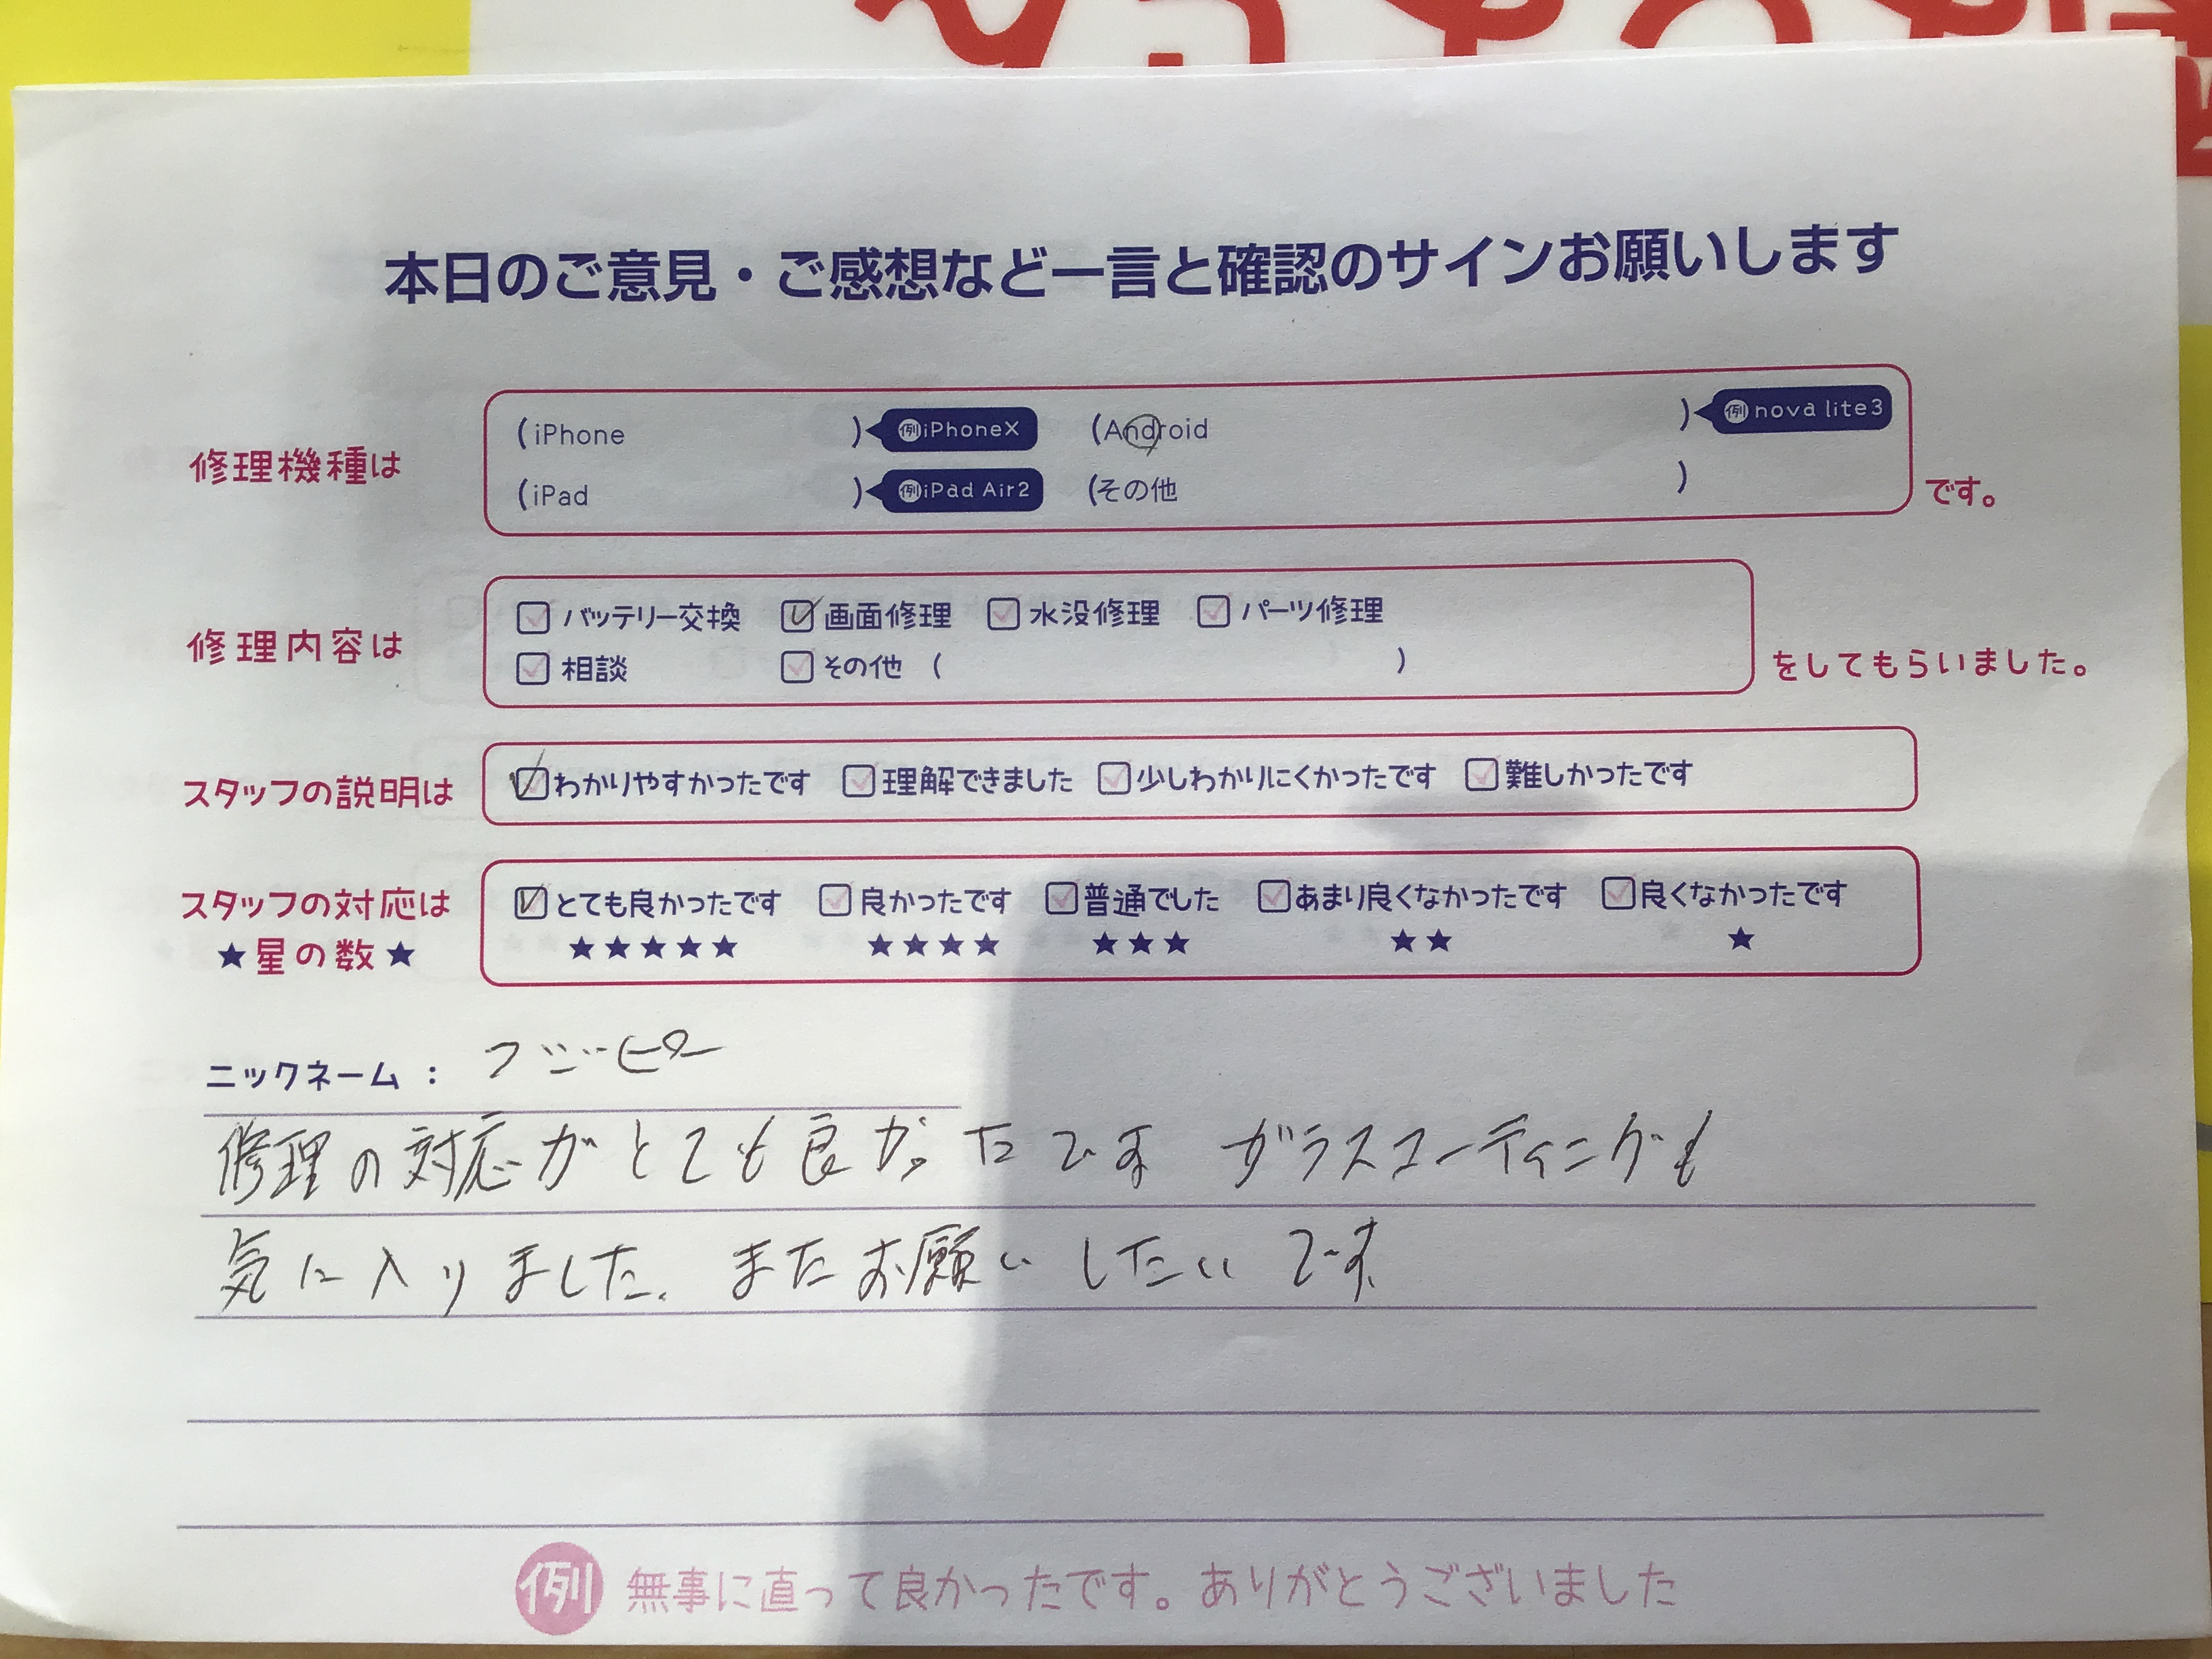 本日のご意見・ご感想など一言と確認のサインお願いします
修理機種は
(iPhone ) 例iPhoneX (Android ) 例nova lite3
(iPad ) 例iPad Air2 (その他 )
です。
修理内容は
バッテリー交換 画面修理 水没修理 パーツ修理
相談 その他 ( )
をしてもらいました。
スタッフの説明は
わかりやすかったです 理解できました 少しわかりにくかったです 難しかったです
スタッフの対応は
★星の数★
とても良かったです 良かったです 普通でした あまり良くなかったです 良くなかったです
★★★★★ ★★★★ ★★★ ★★ ★
ニックネーム : フジピー
修理の対応がとても良かったです ガラスコーティングも
気に入りました。またお願いしたいです
例 無事に直って良かったです。ありがとうございました